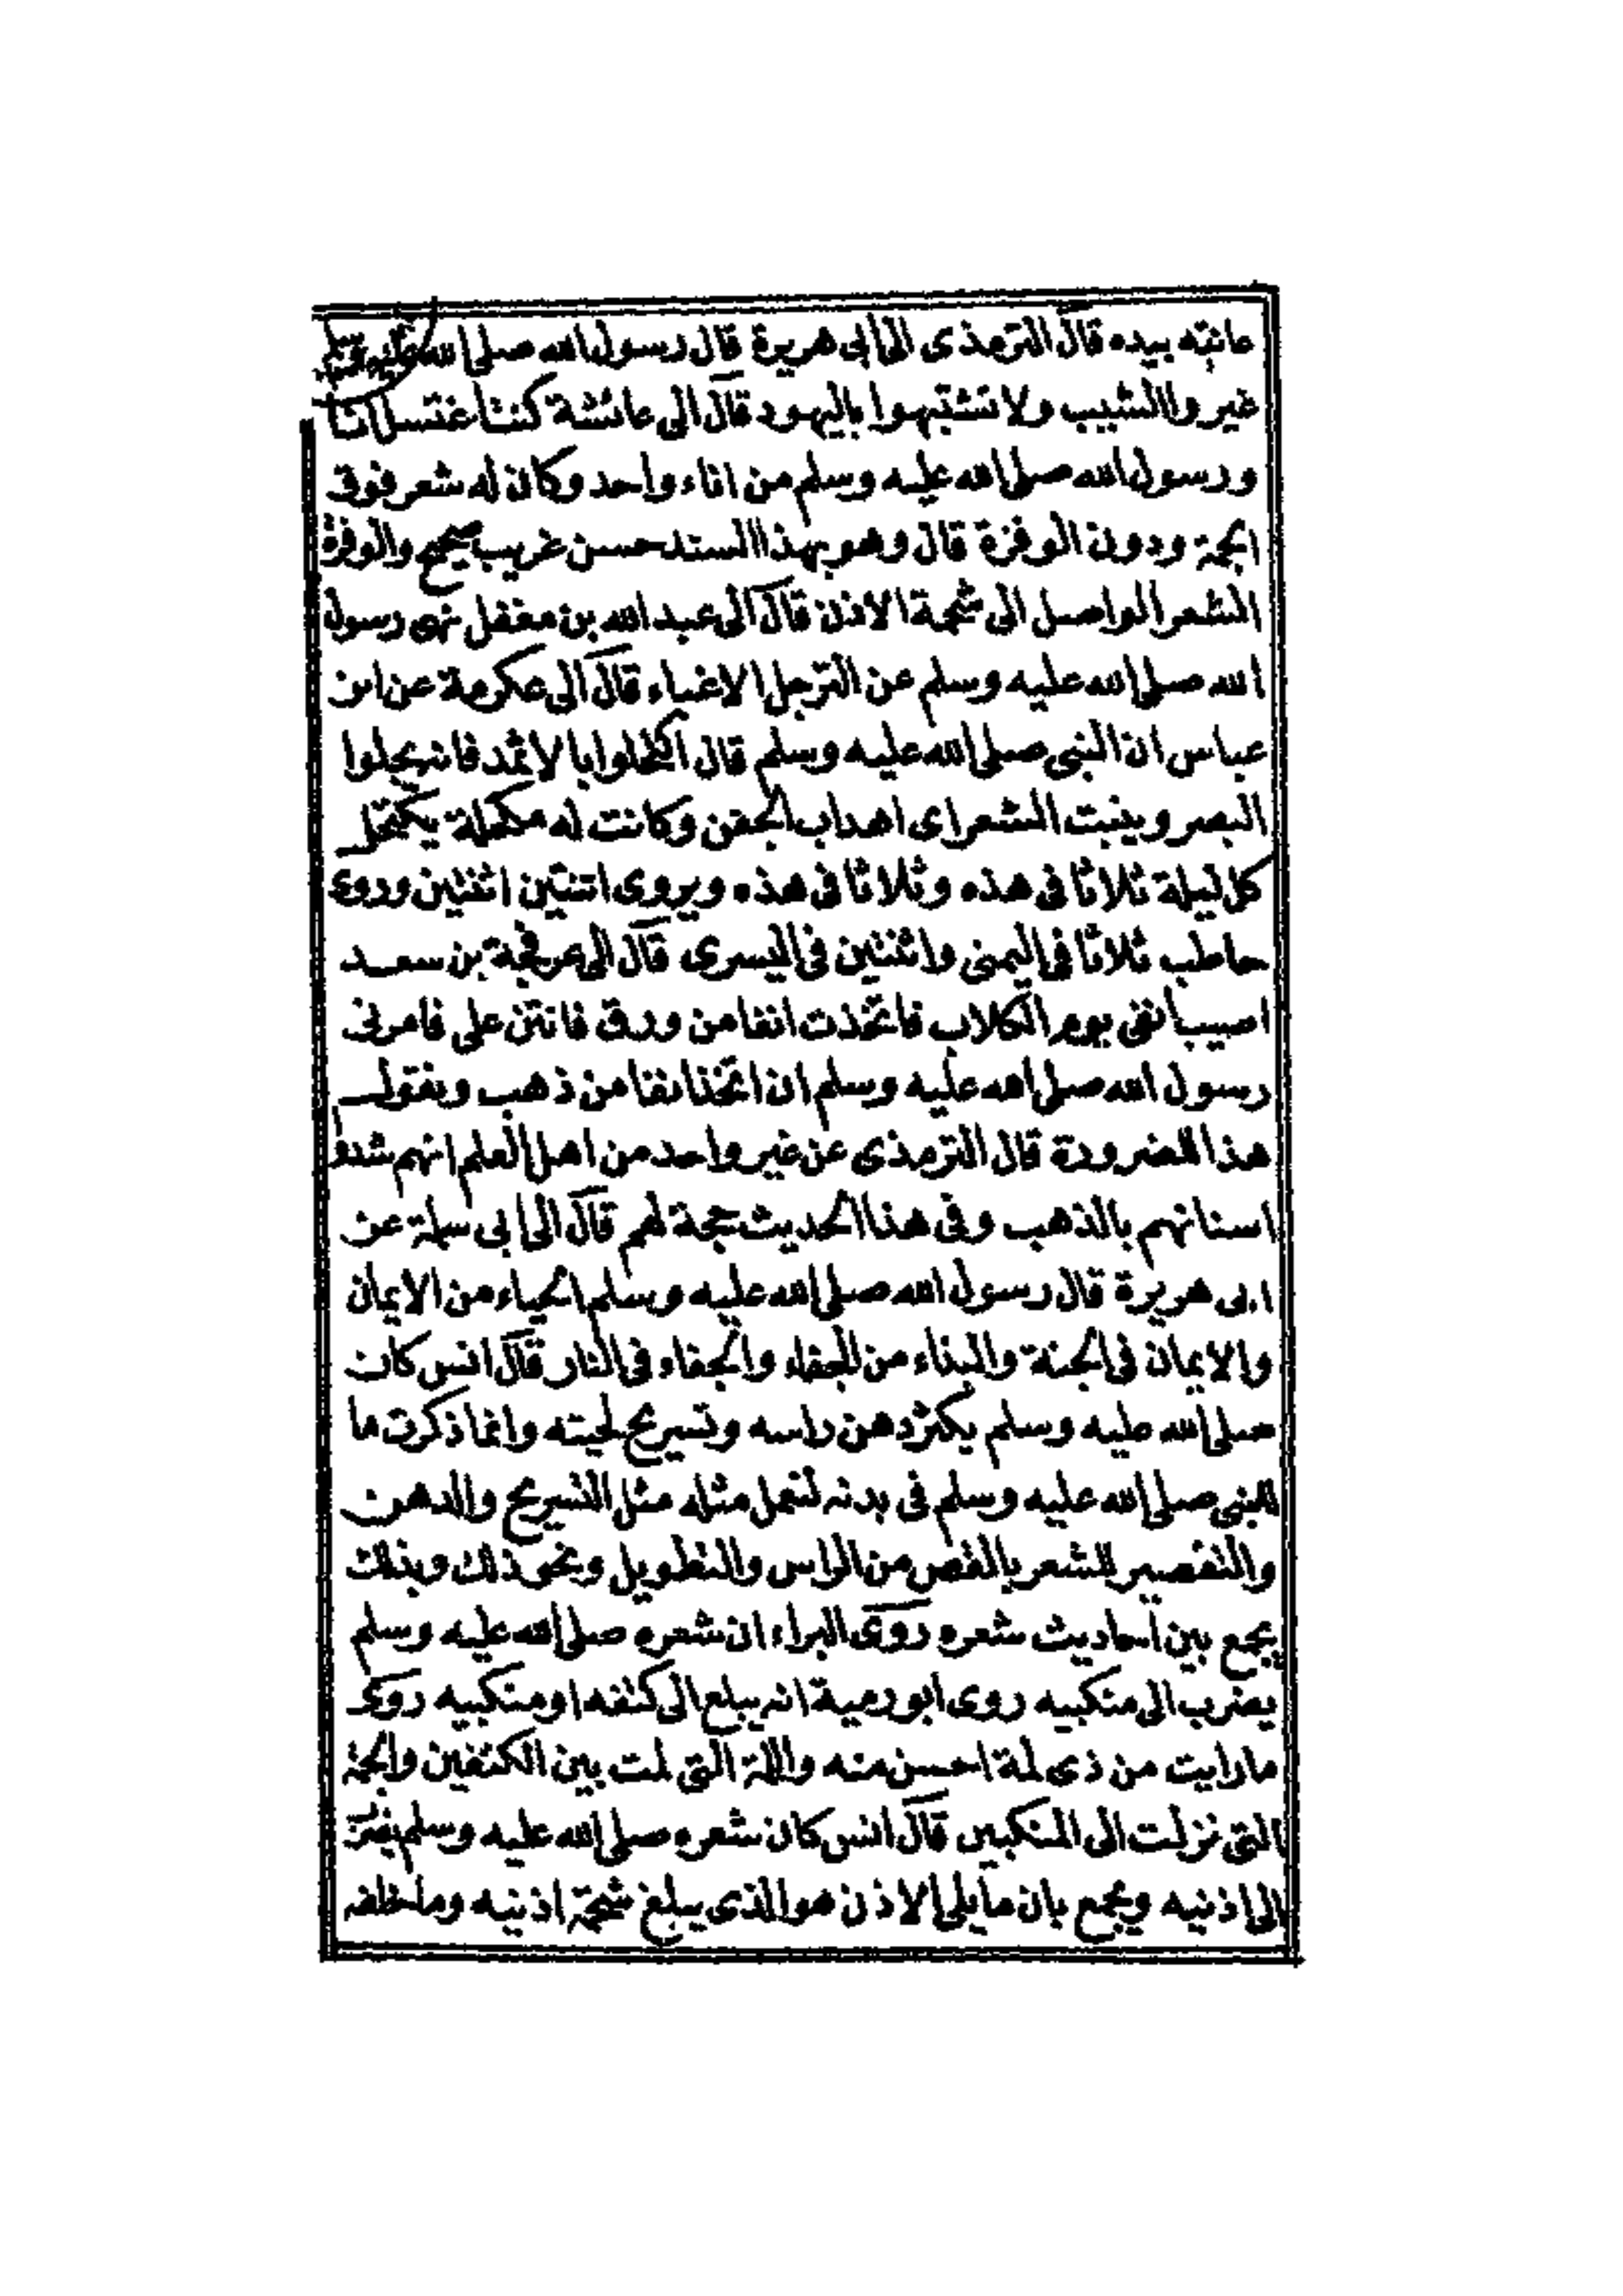 عانته بيده قال الترمذى الى ابى هريرة قال رسول الله صلى الله عليه وسلم
غيروا الشيب ولا تشبهوا باليهود قال الى عائشة كنت اغتسل انا
ورسول الله صلى الله عليه وسلم من اناء واحد وكان له شعر فوق
الجمة ودون الوفرة قال وهو بهذا السند حسن غريب صحيح والوفرة
الشعر الواصل الى شحمة الاذن قال الى عبد الله بن مغفل نهى رسول
الله صلى الله عليه وسلم عن الترجل الا غباء قال الى عكرمة عن ابن
عباس ان النبى صلى الله عليه وسلم قال اكتحلوا بالاثمد فانه يجلوا
البصر وينبت الشعر اى اهداب الجفن وكانت له مكحلة يكتحل
كل ليلة ثلاثا فى هذه وثلاثا فى هذه ويروى اثنتين اثنتين وروى
حاطب ثلاثا فى اليمنى واثنتين فى اليسرى قال الى عرفجة بن سعد
اصيب انفى يوم الكلاب فاتخذت انفا من ورق فانتن على فامرنى
رسول الله صلى الله عليه وسلم ان اتخذ انفا من ذهب ونقول
هذا للضرورة قال الترمذى عن غير واحد من اهل العلم انهم شدوا
اسنانهم بالذهب وفى هذا الحديث حجة لهم قال الى ابى سلمة عن
ابى هريرة قال رسول الله صلى الله عليه وسلم الحياء من الايمان
والايمان فى الجنة والبذاء من الجفاء والجفاء فى النار قال انس كان
صلى الله عليه وسلم يكثر دهن راسه وتسريح لحيته وانما ذكرت ما
للنبى صلى الله عليه وسلم فى بدنه لنعمل مثله مثل التسريح والدهن
والتقصير للشعر بالقص من الراس والتطويل ونحو ذلك وبذلك
يجمع بين احاديث شعره روى البراء ان شعره صلى الله عليه وسلم
يضرب الى منكبيه روى ابو رمية انه يبلغ الى كتفه او منكبيه روى
ما رايت من ذى لمة احسن منه واللمة التى لمت بين الكتفين والجمة
التى نزلت الى المنكبين قال انس كان شعره صلى الله عليه وسلم يضرب
الى اذنيه ويجمع بان ما يلى الاذن هو الذى يبلغ شحمة اذنيه وما خلفه